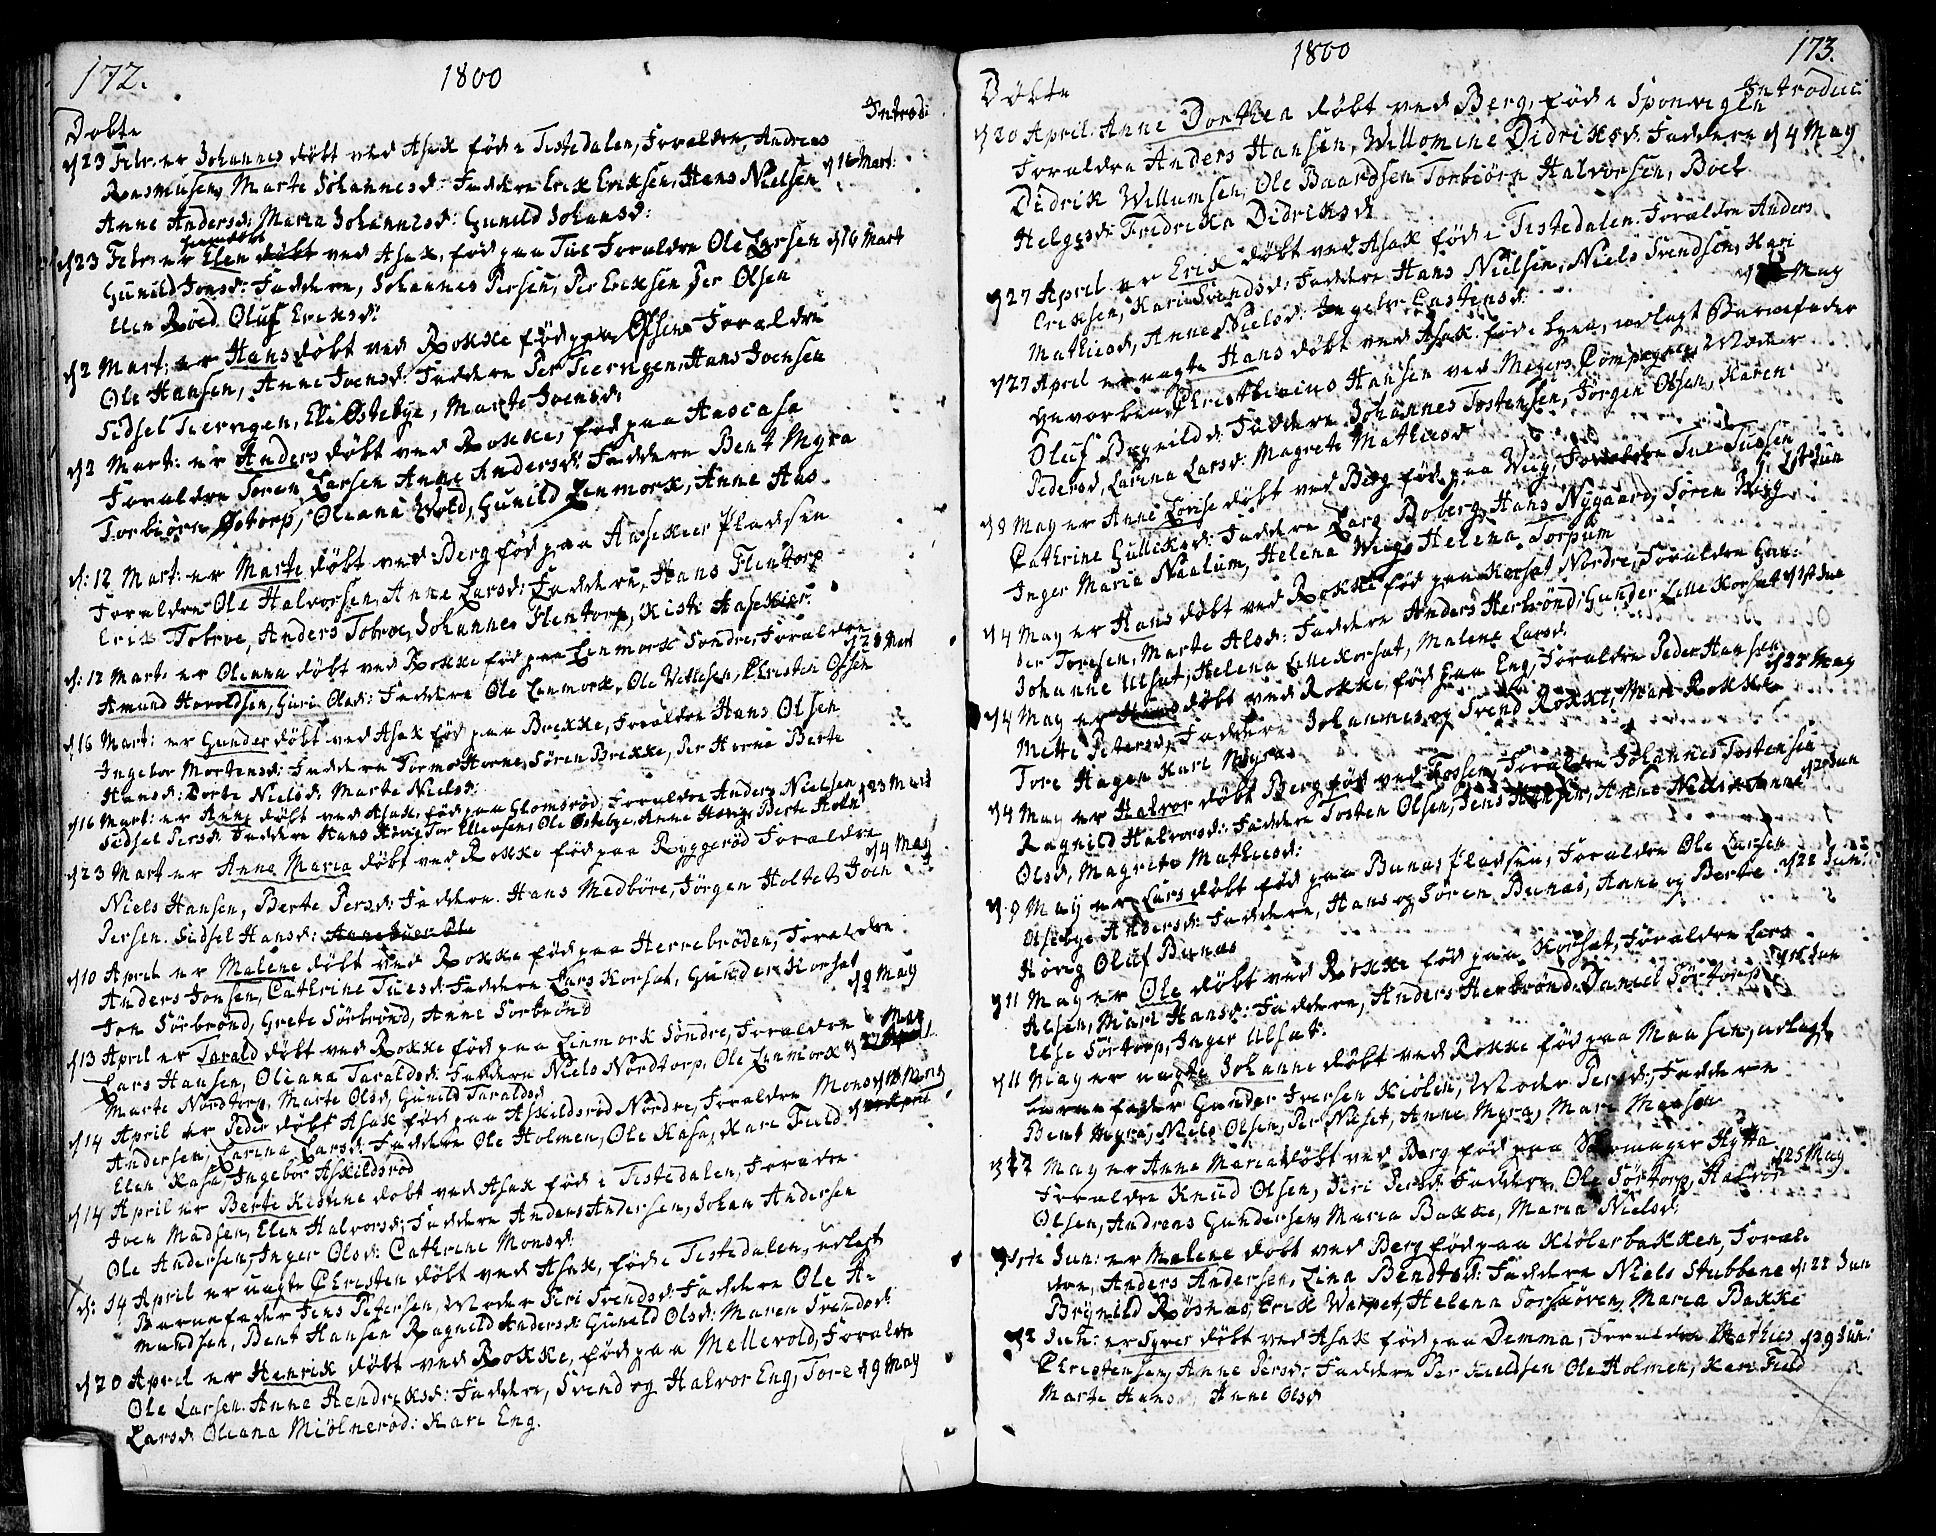 172.
1800
Døbte
Introd:
d 23 Febr: er Johannes døbt ved Asak fød i Tistedalen, Foraldre, Andreas
Rasmusen, Marte Johannesd: Faddere Erik Eriksen, Hans Nielsen d 16 Mart:
Anne Andersd: Maria Johannesd: Gunild Johansd:
d 23 Febr: er Elen døbt ved Asak, fød paa Tue Foraldre Ole Larsen d 16 Mart
Gunild Jonsd: Faddere, Johannes Persen, Per Eriksen, Per Olsen
Elen Røed Oluf Eriksd:
d 2 Mart: er Hans døbt ved Rokke fød paa Foraldre
Ole Hansen, Anne Joensd: Faddere Per Tierngen, Hans Joensen
Sidsel Tierngen, Eli Østebye, Marte Joensd:
d 2 Mart: er Anders døbt ved Rokke, fød paa Aascasa
Foraldre Søren Larsen Anne Andersd: Faddere Bent Myra
Torbiørn Østorp, Oliana Wold, Gunild Lenmork, Anne Aas.
d: 12 Mart: er Marte døbt ved Berg fød paa Asekier Pladsen
Foraldre Ole Halvorsen, Anne Larsd: Faddere, Hans Flentorp
Erik Tobroe, Anders Tobroe, Johannes Flentorp, Kisti Asekier.
d: 12 Mart: er Olianna døbt ved Rokke fød paa Lenmork Søndre, Foraldre d 28 Mart
Amund Haroldsen, Guri Olsd: Faddere Ole Lenmork, Ole Vettesen, Christen Olsen
d 16 Mart: er Gunder døbt ved Asak fød paa Brekke, Foraldre Hans Olsen
Ingebor Mortensd: Faddere Tormo Horne, Søren Brekke, Per Horne Berte
Hansd: Dorte Nielsd: Marte Nielsd:
d 16 Mart: er Anne døbt ved Asak, fød paa Glomsrød, Foraldre Anders Nielsen d 23 Mart
Sidsel Persd: Faddere Hans Hövig Tor Ellevsen, Ole Østebye, Anne Høvig, Berte Holm
d 23 Mart er Anne Maria døbt ved Rokke fød paa Ryggerød Foraldre
Niels Hansen, Berte Persd: Faddere. Hans Medböre, Jörgen Holtet, Joen d 4 May
Persen. Sidsel Hansd:
d 10 April er Malene døbt ved Rokke fød paa Herrebrøden, Foraldre
Anders Jonsen, Cathrine Tuesd: Faddere Lars Korsat, Gunder Korsat
Jon Sörbrönd, Grete Sörbrönd, Anne Sorbrönd d 9 May
d 13 April er Tarald døbt ved Rokke fød paa Lenmork Søndre, Foraldre May
Lars Hansen, Oliana Taraldsd: Faddere Niels Nordtorp, Ole Lenmork d 27 April
Marte Nordtorp, Marte Olsd, Gunild Taraldsd
d 14 April er Peder døbt Asak fød paa Askildsrød Nordre, Foraldre Mons
Andersen, Larina Larsd: Faddere Ole Holmen, Ole Kasa, Kari Field
Elen Kasa, Ingebor Askildsrød
d 14 April er Berte Kistine døbt ved Asak fød i Tistedalen, Foraldre
Joen Madsen, Elen Halvorsd: Faddere Anders Andersen, Johan Andersen
Ole Andersen, Inger Olsd: Cathrine Monsd:
d: 14 April er uagte Christen døbt ved Asak, fød i Tistedalen, udlagt
Barnefader Jens Petersen, Moder Siri Svendsd: Faddere Ole A-
mundsen, Bent Hansen Ragnild Andersd: Gunild Olsd: Maren Svendsd:
d 20 April er Henrik døbt ved Rokke, fød paa Mellevold, Foraldre
Ole Larsen Anne Hendriksd: Faddere, Svend og Halvor Eng, Tore d 9 May
Larsd: Oliana Miölnerød: Kari Eng.
1800
173.
Døbte
Introduc:
d 20 April Anne Dorthea døbt ved Berg, fød i Sponvigen
Foraldre Anders Hansen, Willomine Didriksd: Faddere d 4 May
Didrik Willumsen, Ole Baardsen Torbiörn Halvorsen, Boel
Helgesd: Fredrika Didriksd:
d 27 April er Erik døbt ved Asak fød i Tistedalen. Foraldre Anders
Eriksen, Kari Svendsd: Faddere Hans Nielsen, Niels Svendsen, Kari
Mathiesd, Anne Nielsd: Ingebr Castensd: May
d 27 April er uagte Hans døbt ved Asak fød i Lyen, udlagt Barnefader
Christianus Hansen ved Meyers Compagnie, Moder
Oluf Bagnild d: Faddere Johannes Tostensen, Jørgen Olsen, Karen
Pedersd, Larina Larsd: Magrete Mathiesd
d 9 May er Anne Lovise døbt ved Berg fød paa Wiig, Foraldre Tue Tuesen
Cathrine Gulliksd: Faddere Lars Boberg, Hans Nygaard, Søren Wiig d: 1ste Jun
Inger Maria Naalum, Helena Wiig, Helena Torpum
d 4 May er Hans døbt ved Rokke fød paa Korsat Nordre, Foraldre Gun-
der Toresen, Marte Alsd: Faddere Anders Herbrønd, Gunder Lille Korsat d 1ste Jun
Johanne Ulsat, Helena Lille Korsat, Malene Larsd:
d 4 May er Hans døbt ved Rokke, fød paa Eng, Foraldre Peder Hansen
Mette Petersd: Faddere Johannes og Svend Rokke, Mari Rokke d 22 May
Tore Hagen Kari Myra
d 4 May er Halvor døbt Berg fød ved Fossen, Foraldre Johannes Tostensen
Ragnild Halvorsd: Faddere Tosten Olsen, Jens Hansen, Anne Nielsd: Anne
Olsd, Magrete Mathiesd:
d. 9 May er Lars døbt fød paa Bunas Pladsen, Foraldre Ole Larsen
Olsebye Andersd: Faddere, Hans og Søren Bunas, Anne og Berte d 22 Jun:
Hövig Oluf Bunas
d 11 May er Ole døbt ved Rokke fød paa Korsat, Foraldre Lars
Alsen, Mari Hansd: Faddere, Anders Herbrønd, Daniel Sörtorp
Else Sörtorp, Inger Ulsat.
d 11 May er uagte Johanne døbt ved Rokke fød paa Maasen, udlagt
barnefader Gunder Iversen Kiölen, Moder Persd:, Faddere
Bent Myra, Niels Olsen, Per Nilset, Anne Myra, Mari Maasen
d 22 May er Anne Maria døbt ved Berg fød paa Skomager Hytta
Foraldre Knud Olsen, Siri Persd: Faddere, Ole Sörtorp, Halvor d 25 May
Olsen, Andreas Gundersen, Maria Bakke, Maria Nielsd:
d 1ste Jun: er Malene døbt ved Berg fød paa Kiölerbakken, Foral-
dre, Anders Andersen, Lina Bendtsd: Faddere Niels Stubbene d 22 Jun
Brynild Røsnas, Erik Warpet, Helena Torskoven, Maria Bakke
d 2 Jun: er Syver døbt ved Asak fød paa Demma, Foraldre Mathies d 29 Jun:
Christensen, Anne Persd: Faddere Per Kieldsen Ole Holmen, Kari Field
Marte Hansd, Anne Olsd